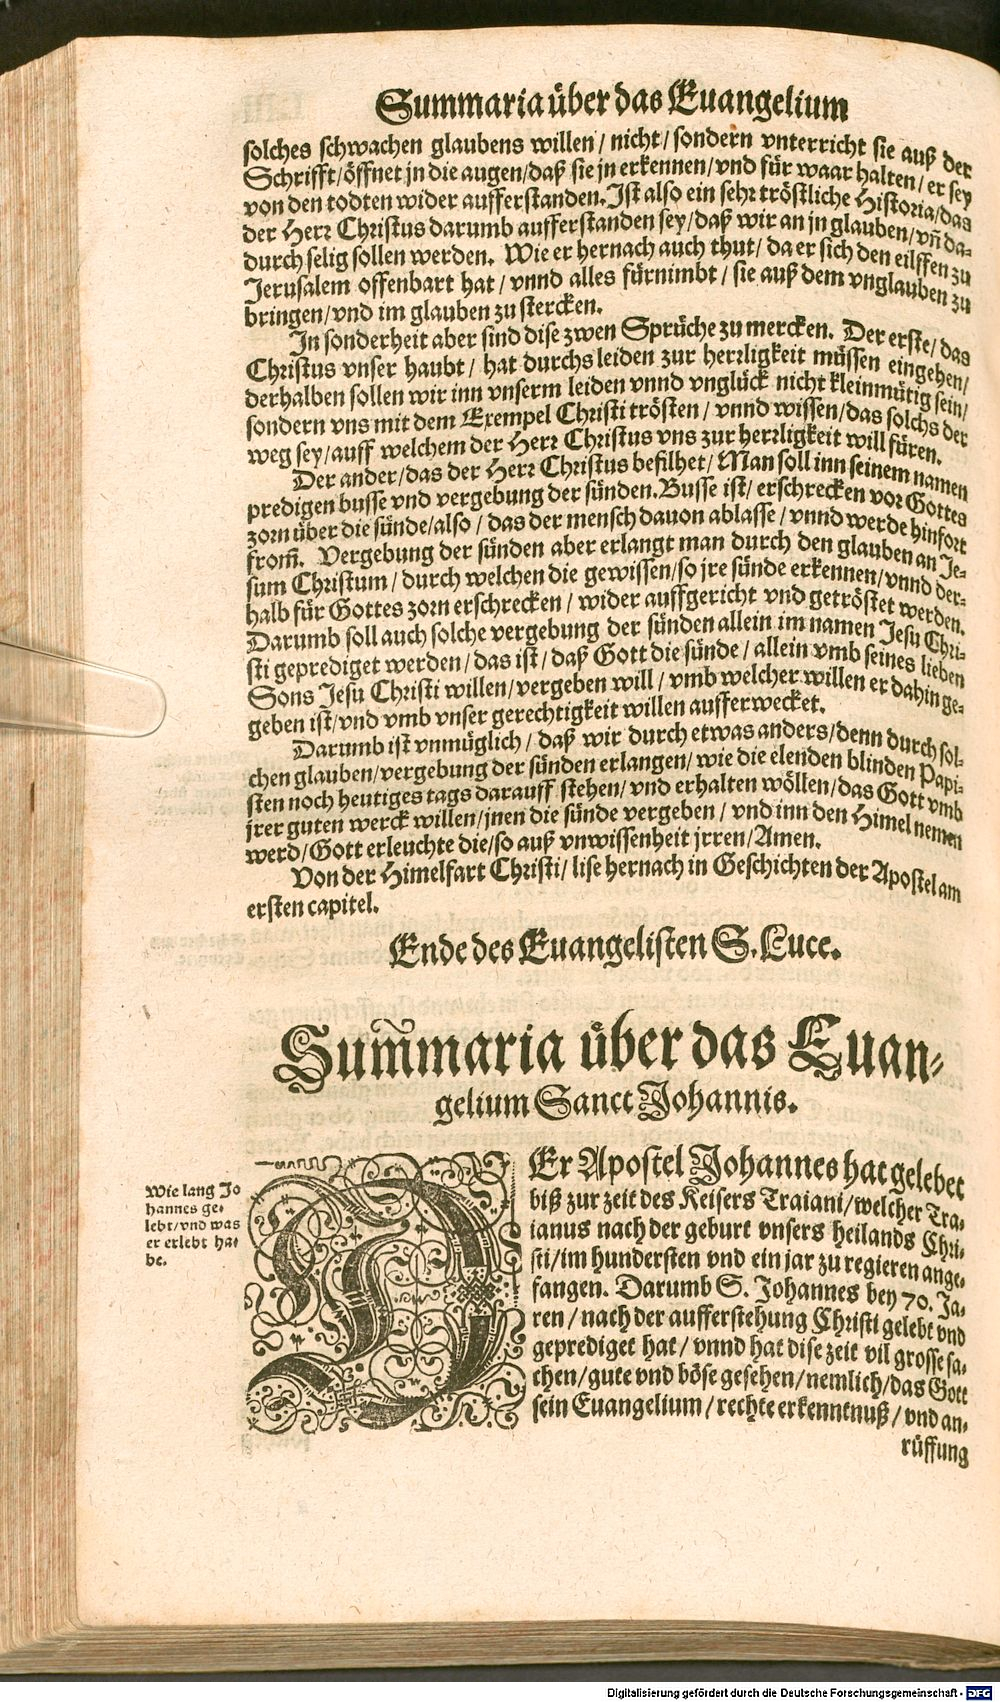 Summaria über das Euangelium
solches schwachen glaubens willen / nicht / sondern vnterricht sie auß der
Schrifft / öffnet jn die augen / daß sie jn erkennen / vnd für waar halten / er sey
von den todten wider aufferstanden. Ist also ein sehr tröstliche Historia / das
der Herr Christus darumb aufferstanden sey / daß wir an jn glauben / vñ da-
durch selig sollen werden. Wie er hernach auch thut / da er sich den eilffen zu
Jerusalem offenbart hat / vnnd alles fürnimbt / sie auß dem vnglauben zu
bringen / vnd im glauben zu stercken.
In sonderheit aber sind dise zwen Sprüche zu mercken. Der erste / das
Christus vnser haubt / hat durchs leiden zur herrligkeit müssen eingehen /
derhalben sollen wir inn vnserm leiden vnnd vnglück nicht kleinmütig sein /
sondern vns mit dem Exempel Christi trösten / vnnd wissen / das solchs der
weg sey / auff welchem der Herr Christus vns zur herrligkeit will füren.
Der ander / das der Herr Christus befilhet / Man soll inn seinem namen
predigen busse vnd vergebung der sünden. Busse ist / erschrecken vor Gottes
zorn über die sünde / also / das der mensch dauon ablasse / vnnd werde hinfort
from̃. Vergebung der sünden aber erlangt man durch den glauben an Je-
sum Christum / durch welchen die gewissen / so jre sünde erkennen / vnnd der-
halb für Gottes zorn erschrecken / wider auffgericht vnd getröstet werden.
Darumb soll auch solche vergebung der sünden allein im namen Jesu Chri-
sti geprediget werden / das ist / daß Gott die sünde / allein vmb seines lieben
Sons Jesu Christi willen / vergeben will / vmb welcher willen er dahin ge-
geben ist / vnd vmb vnser gerechtigkeit willen aufferwecket.
Darumb ist vnmüglich / daß wir durch etwas anders / denn durch sol-
chen glauben / vergebung der sünden erlangen / wie die elenden blinden Papi-
sten noch heutiges tags darauff stehen / vnd erhalten wöllen / das Gott vmb
jrer guten werck willen / jnen die sünde vergeben / vnd inn den Himel nemen
werd / Gott erleuchte die / so auß vnwissenheit jrren / Amen.
Von der Himelfart Christi / lise hernach in Geschichten der Apostel am
ersten capitel.
Ende des Euangelisten S. Luce.
Sum̃maria über das Euan-
gelium Sanct Johannis.
Wie lang Jo
hannes ge-
lebt / vnd was
er erlebt ha-
be.
DEr Apostel Johannes hat gelebet
biß zur zeit des Keisers Traiani / welcher Tra-
ianus nach der geburt vnsers heilands Chri-
sti / im hundersten vnd ein jar zu regieren ange-
fangen. Darumb S. Johannes bey 70. Ja-
ren / nach der aufferstehung Christi gelebt vnd
geprediget hat / vnnd hat dise zeit vil grosse sa-
chen / gute vnd böse gesehen / nemlich / das Gott
sein Euangelium / rechte erkenntnuß / vnd an-
rüffung
Digitalisierung gefördert durch die Deutsche Forschungsgemeinschaft - DFG